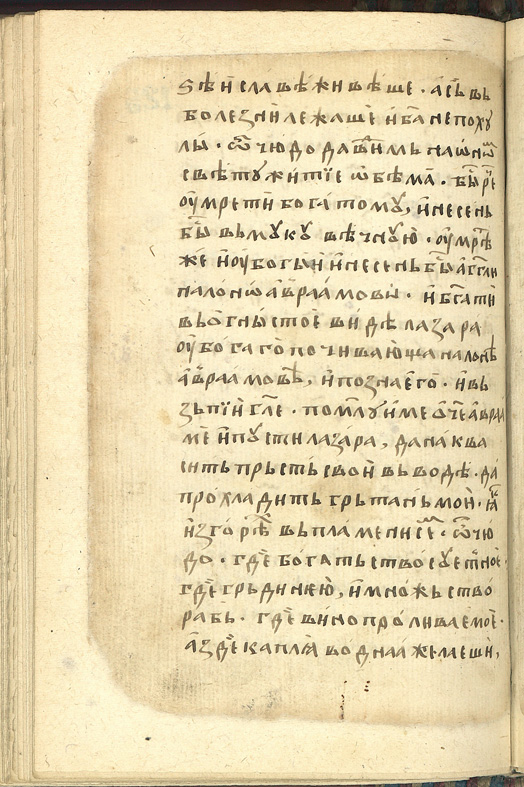 ѕѣ и҆ славѣ живѣше · а се́и въ
болезни лежаше и҆ ба҃ не похѹ
ли̇ · ѽ чюдо да вѣ́мь на ѡ҆нѡ́
свѣтꙋ житїе ѡ҆бѣма̀ · бы́ рⷱ҇е
ᲂу҆мрети бога́томꙋ, и҆ несень
бы́ вь мꙋкꙋ вѣчнꙋю̀ · ᲂу҆мрѣ́
же и҆ ᲂу҆богыи и҆ несень бы̑ а҆гг҃ли
на лоно а҆враа́мовы̀ · и҆ бг҃ати
вь ѻ҆гны стоѐ видѣ лазара
ᲂу҆бога́го почива́юща на лонѣ
а҆враамовѣ, и҆ позна є҆го̀ · и҆ вь
зъпїи гл҃е · помл҃ꙋи ме ѻ҆́че а҆враа
ме и҆ пꙋсти лаза́ра, да наква
сить прьсть свои вь водѣ · да́
прохладить грьтань мои · ꙗ҆́
и҆зго́рѣ вь пламени се́ · ѽ чю
до · гдѐ богатьство сꙋетное ·
гдѐ грьдинею, и҆ множьство
рабь · гдѐ вино проливаемое ·
а҆ здѐ каплѧ водна́а жела́еши,